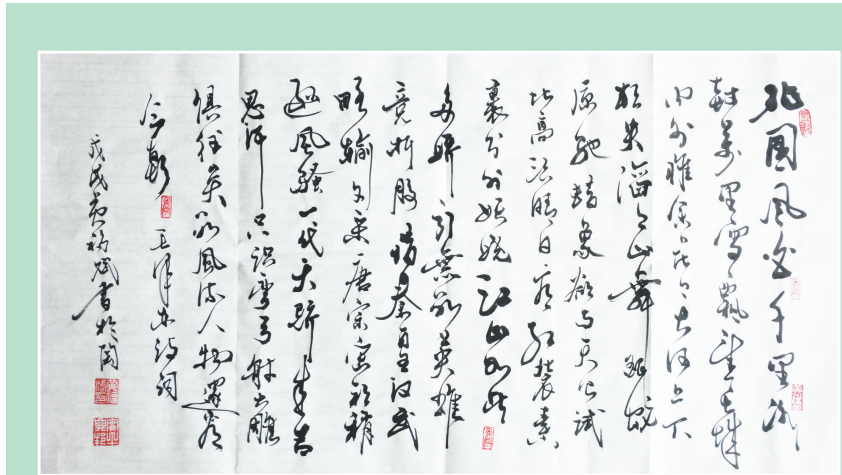 北國風光千里冰
封萬里雪飄望長城
內外惟餘莽莽大河上下
頓失滔滔山舞銀蛇
原馳蜡象欲與天公試
比高須晴日看紅裝素
裹分外妖嬈江山如此
多嬌引無數英雄
竟折腰惜秦皇漢武
略輸文采唐宗宋祖稍
遜風騷一代天驕成吉
思汗只識彎弓射大雕
俱往矣數風流人物還看
今朝 毛澤東詩詞
戊戌 書於閩